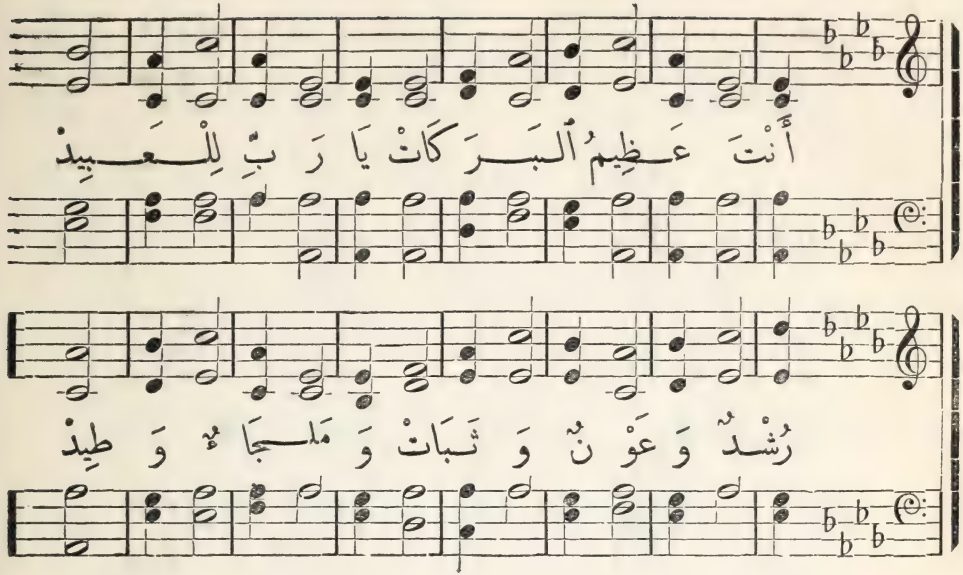 أَنْتَ عَـظِيمُ ٱلـبَـرَكَاتْ يَا رَ بِّ لِلْـعَـبِيدْ
رُشْـدٌ وَ عَوْ نٌ وَ ثَـبَاتْ وَ مَلـجَا ءٌ وَ طِيدْ